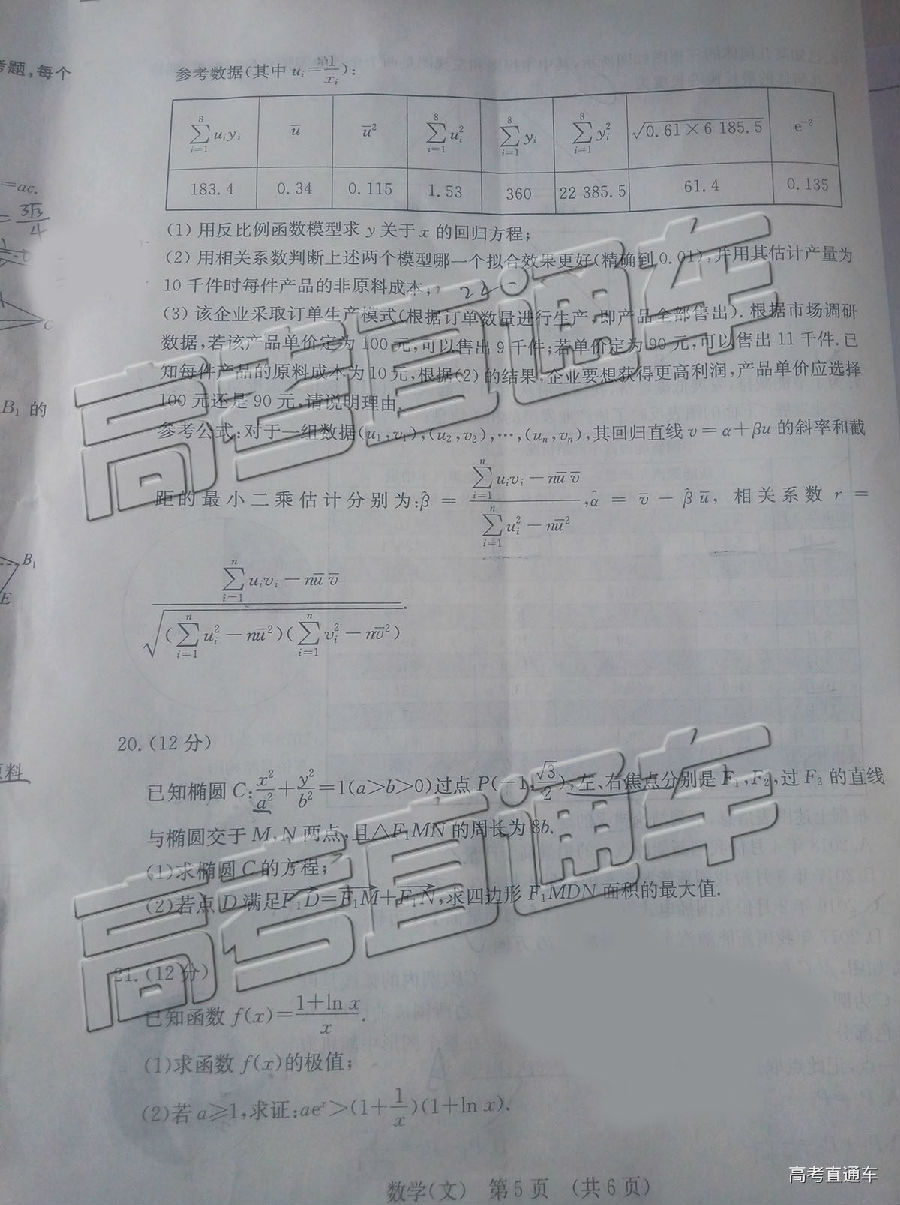 考题,每个
参考数据(其中 uᵢ=1/xᵢ):
∑uᵢyᵢ ū ū² ∑uᵢ² ∑yᵢ ∑yᵢ² √0.61×6 185.5 e⁻²
183.4 0.34 0.115 1.53 360 22 385.5 61.4 0.135
=ac.
(1) 用反比例函数模型求 y 关于 x 的回归方程;
(2) 用相关系数判断上述两个模型哪一个拟合效果更好(精确到 0.01),并用其估计产量为
10 千件时每件产品的非原料成本;
(3) 该企业采取订单生产模式(根据订单数量进行生产,即产品全部售出). 根据市场调研
数据,若该产品单价定为 100 元,可以售出 9 千件;若单价定为 90 元,可以售出 11 千件. 已
知每件产品的原料成本为 10 元,根据(2) 的结果,企业要想获得更高利润,产品单价应选择
B₁ 的
100 元还是 90 元,请说明理由.
参考公式:对于一组数据(u₁,v₁),(u₂,v₂),⋯,(uₙ,vₙ),其回归直线 v=α+βu 的斜率和截
距的最小二乘估计分别为:β̂ = (∑uᵢvᵢ−nūv̄)/(∑uᵢ²−nū²),α̂ = v̄−β̂ū, 相关系数 r =
(∑uᵢvᵢ−nūv̄)/√((∑uᵢ²−nū²)(∑vᵢ²−nv̄²)).
B₁
E
20. (12 分)
原料
已知椭圆 C:x²/a²+y²/b²=1(a>b>0)过点 P(−1,√3/2),左、右焦点分别是 F₁,F₂,过 F₂ 的直线
与椭圆交于 M,N 两点,且△F₁MN 的周长为 8b.
(1)求椭圆 C 的方程;
(2)若点 D 满足F₁D=F₁M+F₁N,求四边形 F₁MDN 面积的最大值.
21. (12 分)
已知函数 f(x)=(1+ln x)/x.
(1)求函数 f(x)的极值;
(2)若 a≥1,求证:aeˣ>(1+1/x)(1+ln x).
数学(文) 第 5 页 (共 6 页)
高考直通车
高考直通车
高考直通车